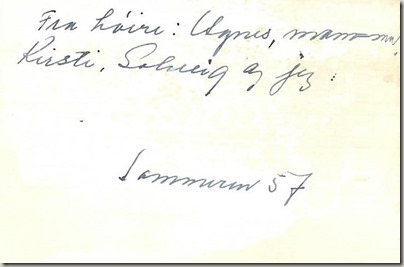 Fra høire: Agnes, mamma,
Kirsti, Solveig og jeg.
Sommeren 57